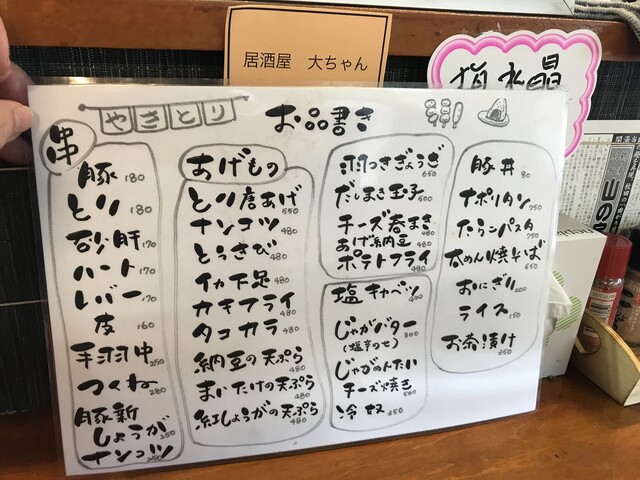 居酒屋 大ちゃん
指 水晶
やきとり
お品書き
串
豚 180
とり 180
砂肝 170
ハート 170
レバー 170
皮 160
手羽中 250
つくね 280
豚新
しょうが 250
ナンコツ 250
あげもの
とり唐あげ 550
ナンコツ 480
とうきび 480
イカ下足 480
カキフライ 480
タコカラ 480
納豆の天ぷら 480
まいたけの天ぷら 480
紅しょうがの天ぷら 480
羽つきぎょうざ 650
だしまき玉子 500
チーズ春まき 480
あげ納豆 480
ポテトフライ 480
塩キャベツ 400
じゃがバター 300
(塩辛のせ)
じゃがめんたい
チーズ焼き 500
冷奴 350
豚丼 80
ナポリタン 750
たらこパスタ 750
太めん焼そば 650
おにぎり 200
ライス 150
お茶漬け 350
山の